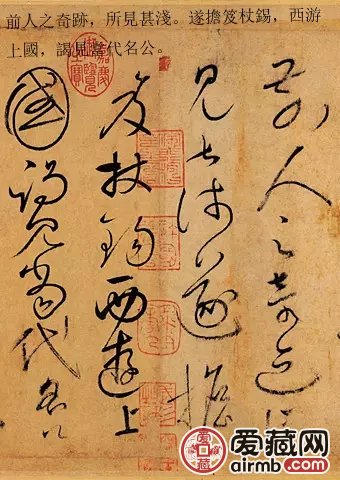 前人之奇跡，所見甚淺。遂擔笈杖錫，西游
上國，謁見當代名公。
前人之奇迹所
見甚淺遂擔
笈杖錫西遊上
國謁見當代名公
嘉慶御覽之寶
爱藏网
airmb.com